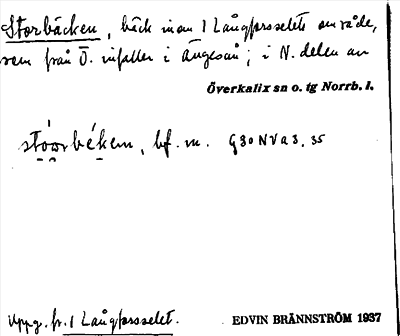 Storbäcken, bäck inom 1 Långforsselets område,
som från Ö. infaller i Ängesån; i N. delen av
Överkalix sn o. tg Norrb. l.
stóorbékem, bf. m. G30NVa3, 35
Uppg. fr. 1 Långforsselet.
EDVIN BRÄNNSTRÖM 1937